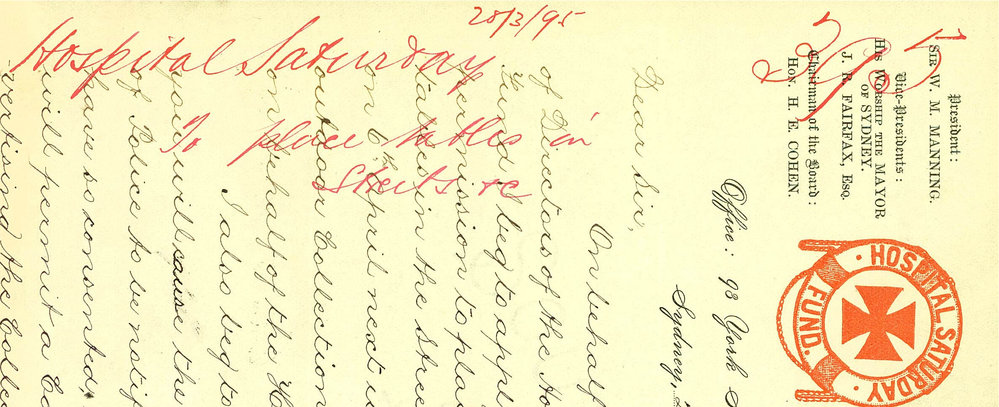 28/3/95
Hospital Saturday
To place tables in
Streets &c
President:
SIR W. M. MANNING.
Vice-Presidents:
HIS WORSHIP THE MAYOR
OF SYDNEY.
J. R. FAIRFAX, ESQ.
Chairman of the Board:
HON. H. E. COHEN.
HOSPITAL SATURDAY FUND.
Office: 93 York S
Sydney,
Dear Sir,
On behalf
of Directors of the Ho
Fund I beg to appl
permission to pla
in the Stree
on 6th April next i
outdoor Collection
on behalf of the H
I also beg to
you will cause the
of Police to be notif
have so consented,
will permit a Ca
vertising the Colle